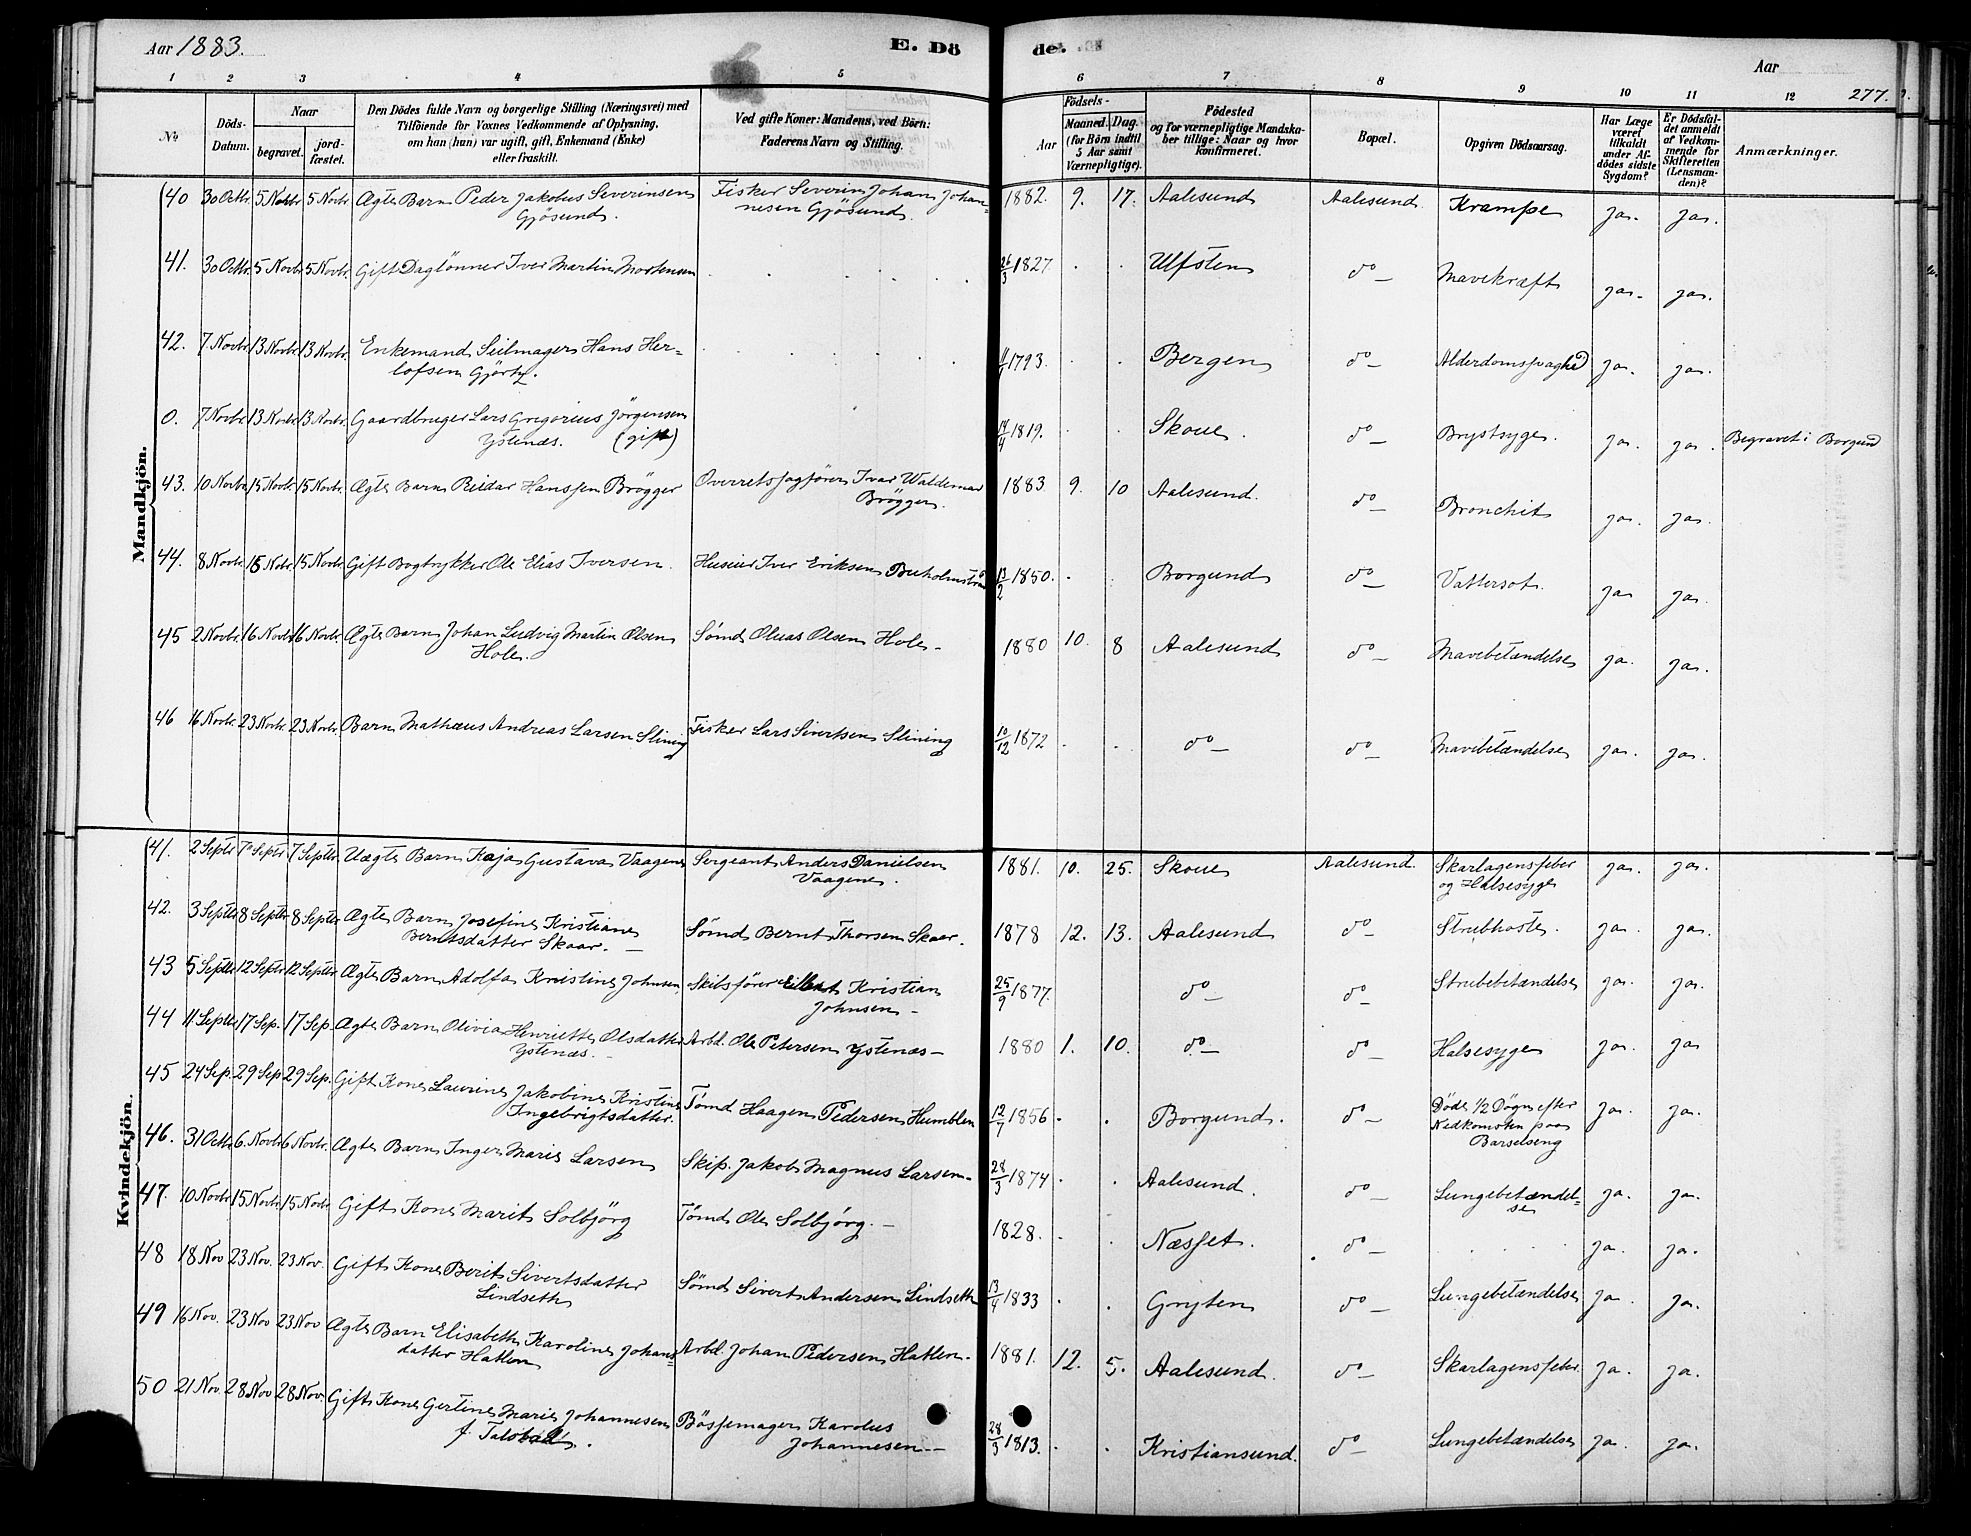 Aar 1883. E. Dö de. Aar
277.
1 2 3 4 5 6 7 8 9 10 11 12
No
Döds-Datum.
Naar
begravet.
jordfæstet.
Den Dödes fulde Navn og borgerlige Stilling (Næringsvei) med
Tilföiende for Voxnes Vedkommende af Oplysning,
om han (hun) var ugift, gift, Enkemand (Enke)
eller fraskilt.
Ved gifte Koner: Mandens, ved Börn:
Faderens Navn og Stilling.
Födsels-
Aar
Maaned. Dag.
(for Börn indtil
5 Aar samt
Værnepligtige).
Födested
og for værnepligtige Mandskaber
tillige: Naar og hvor
konfirmeret.
Bopæl.
Opgiven Dödsaarsag.
Har Læge
været
tilkaldt
under Afdödes
sidste
Sygdom?
Er Dödsfaldet
anmeldt
af Vedkommende
for
Skifteretten
(Lensmanden)?
Anmærkninger.
Mandkjön.
40 30 Octbr. 5 Novbr 5 Novbr. Ægte Barn Peder Jakobus Severinsen Fisker Severin Johan Johan= 1882. 9. 17. Aalesund Aalesund. Krampe ja. ja.
Gjösund. nesen Gjösund.
41. 30 Octbr. 5 Novbr. 5 Novbr. Gift Daglönner Iver Martin Mortensen 26/3 1827. Ulfsten do Mavekræft ja. ja.
42. 7 Novbr. 13 Novbr. 13 Novbr. Enkemand Seilmager Hans Her= 1793. Bergen do Alderdomssvaghed ja. ja.
lofsen Gjörtz.
0. 7 Novbr. 13 Novbr. 13 Novbr. Gaardbruger Lars Gregorius Jörgensen 14/4 1819. Skoue. do Brystsyge. ja. ja. Begravet i Borgund
Ystenæs. (gift)
43. 10 Novbr. 15 Novbr. 15 Novbr. Ægte Barn Reidar Hanssen Brögger Overretssagförer Ivar Waldemar 1883 9. 10 Aalesund. do Bronchit ja. ja.
Brögger.
44. 8 Novbr. 15 Nobr. 15 Novbr. Gift Bogtrykker Ole Elias Iversen. Huseier Iver Eriksen Buholmstran 13/2 1850. Borgund do Vattersot. ja ja.
45 2 Novbr. 16 Novbr. 16 Novbr. Ægte Barn Johan Ludvig Martin Olsen Sömd Oluas Olsen Hole 1880 10. 8 Aalesund do Mavebetændelse ja. ja.
Hole.
46 16 Novbr. 23 Novbr. 23 Novbr. Barn Mathæus Andreas Larsen Slining Fisker Lars Sivertsen Slining 10/12 1872 do do Mavebetændelse ja. ja.
Kvindekjön.
41. 2 Septr 7 Septr 7 Septbr. Uægte Barn Kaja Gustava Vaagene Sergeant Anders Danielsen 1881. 10. 25. Skoue Aalesund. Skarlagensfeber ja. ja.
Vaagene. og Halsesyge
42. 3 Septbr 8 Septbr 8 Septbr Ægte Barn Josefine Kristiane Sömd Bernt Thorsen Skaar. 1878 12. 13. Aalesund do Strubhoste. ja. ja.
Berntsdatter Skaar.
43 5 Septbr 12 Septbr 12 Septbr Ægte Barn Adolfa Kristine Johnsen Skibsförer Kristian 25/9 1877. do do Strubebetændelse ja. ja.
Johnsen
44 11 Septbr 17 Sep. 17 Sep. Ægte Barn Olivia Henriette Olsdatter Arbd. Ole Petersen Ystenæs 1880 1. 10. do do Halsesyge ja. ja
Ystenæs.
45 24 Sep. 29 Sep 29 Sep. Gift Kone Laurine Jakobine Kristine Tömd Haagen Pedersen Humblen 12/7 1856 Borgund. do Döde 1/2 Dögn efter ja. ja.
Ingebrigtsdatter. Nedkomsten paa
Barselseng
46. 31 Octbr 6. Novbr. 6 Novbr. Ægte Barn Inger Marie Larsen Skip. Jakob Magnus Larsen 28/3 1874 Aalesund. do Lungebetændel= ja. ja.
se
47. 10 Novbr 15 Novbr. 15 Novbr. Gift Kone Marit Solbjörg Tömd Ole Solbjörg. 1828. Næsset. do ja. ja.
48 18 Nov 23 Nov. 23 Nov. Gift Kone Berit Sivertsdatter Sömd Sivert Andersen Lindseth 13/4 1833 Gryten do Lungebetændelse ja. ja.
Lindseth
49 16 Nov. 23 Nov 23 Nov Ægte Barn Elisabeth Karoline Johans= Arbd. Johan Pedersen Hatlen 1881. 12. 5. Aalesund. do Skarlagensfeber. ja. ja.
datter Hatlen
50 21 Nov. 28 Nov 28 Nov. Gift Kone Gertine Marie Johannesen Bössemager Karolus 28/3 1813. Kristiansund. do Lungebetændelse ja. ja.
f. Johannesen